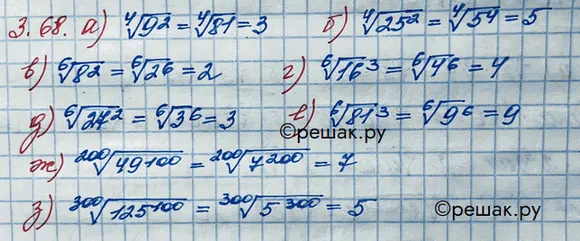 3.68. а) ⁴√9² = ⁴√81 = 3 б) ⁴√25² = ⁴√5⁴ = 5
в) ⁶√8² = ⁶√2⁶ = 2 г) ⁶√16³ = ⁶√4⁶ = 4
д) ⁶√27² = ⁶√3⁶ = 3 е) ⁶√81³ = ⁶√9⁶ = 9
©решак.ру
ж) ²⁰⁰√49¹⁰⁰ = ²⁰⁰√7²⁰⁰ = 7
з) ³⁰⁰√125¹⁰⁰ = ³⁰⁰√5³⁰⁰ = 5
©решак.ру